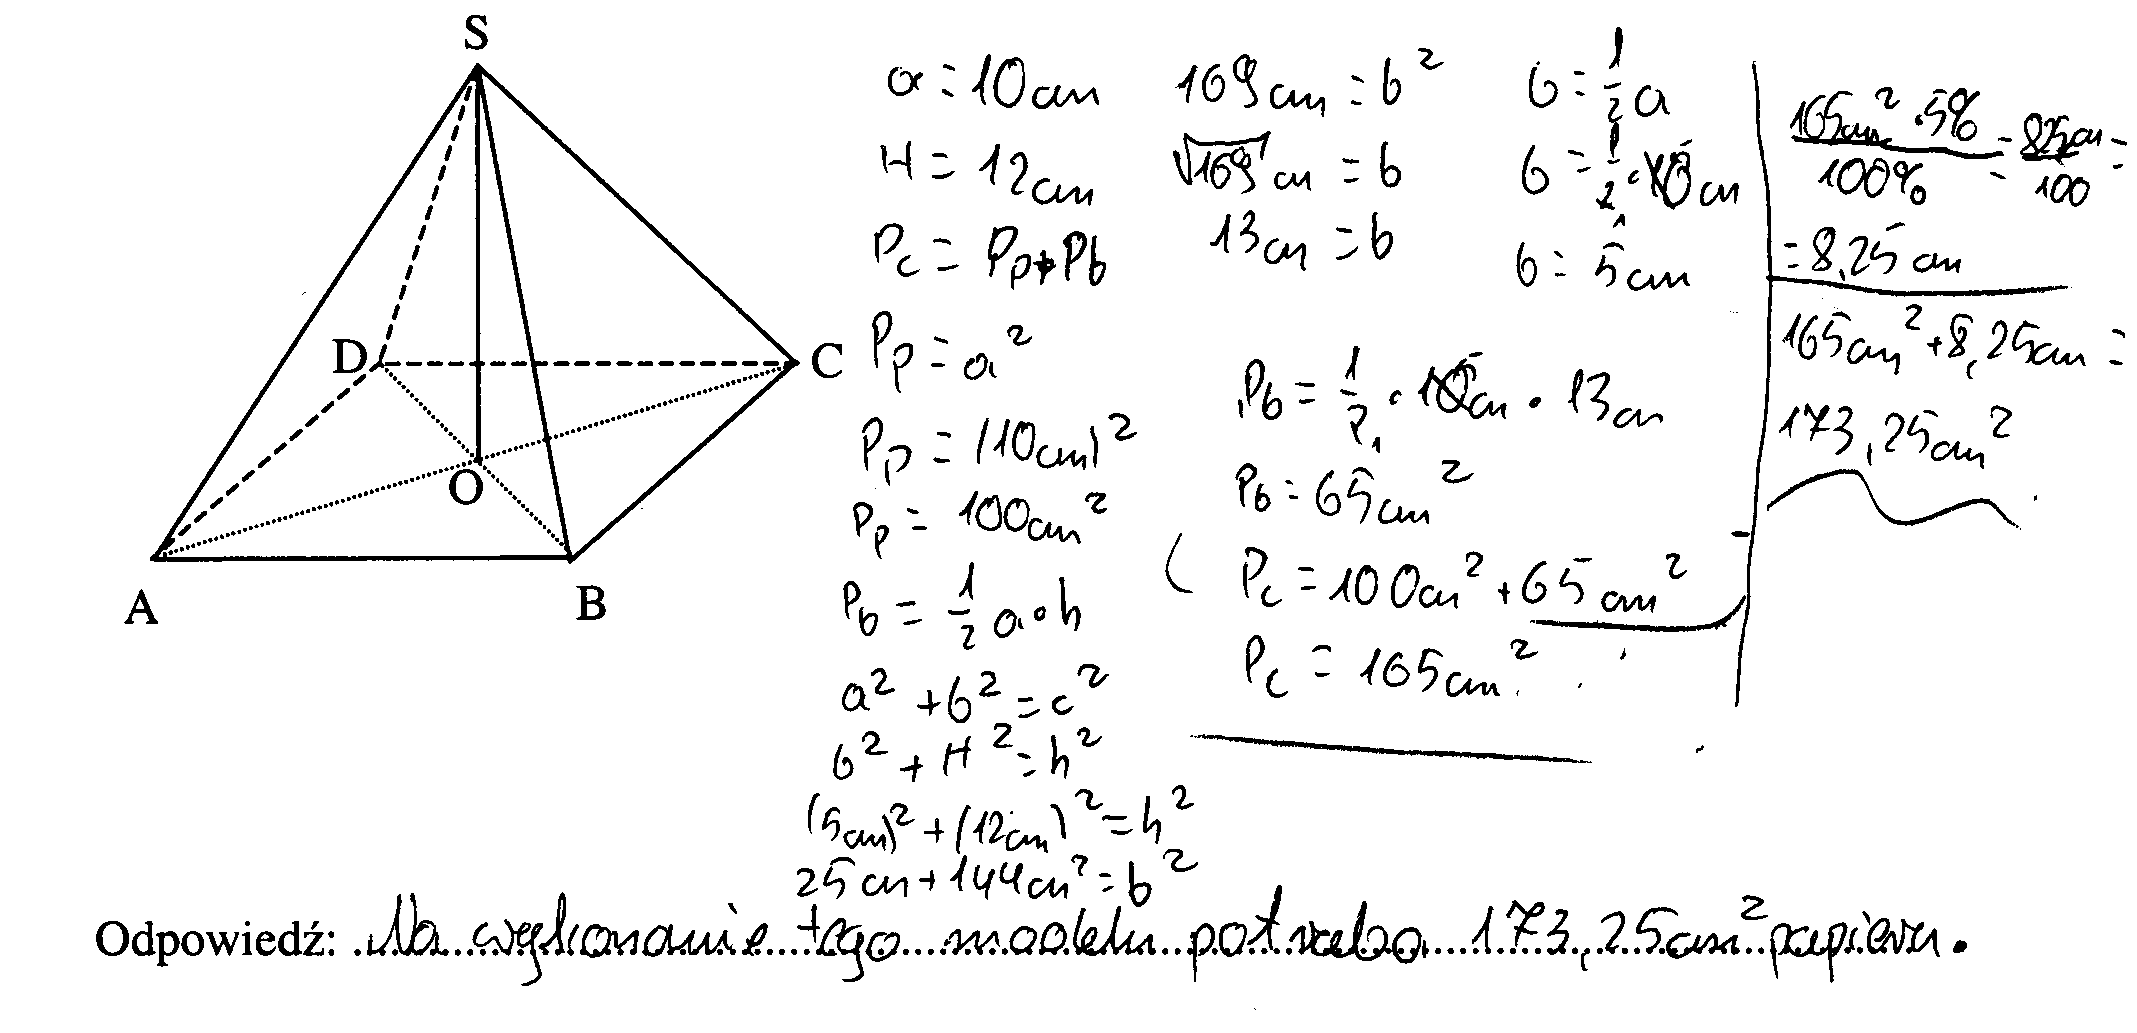 S
D
C
O
A
B
a = 10cm
H = 12cm
Pc = Pp+Pb
Pp = a²
Pp = (10cm)²
Pp = 100cm²
Pb = 1/2 a·h
a² + b² = c²
b² + H² = h²
(5cm)² + (12cm)² = h²
25cm + 144cm² = b²
169cm = b²
√169 cm = b
13cm = b
b = 1/2 a
b = 1/2 · 10cm
b = 5cm
Pb = 1/2 · 10cm · 13cm
Pb = 65cm²
Pc = 100cm² + 65cm²
Pc = 165cm²
165cm² · 5% / 100% = 825cm / 100 =
= 8,25cm
165cm² + 8,25cm =
173,25cm²
Odpowiedź: Na wykonanie tego modelu potrzeba 173,25cm² papieru.